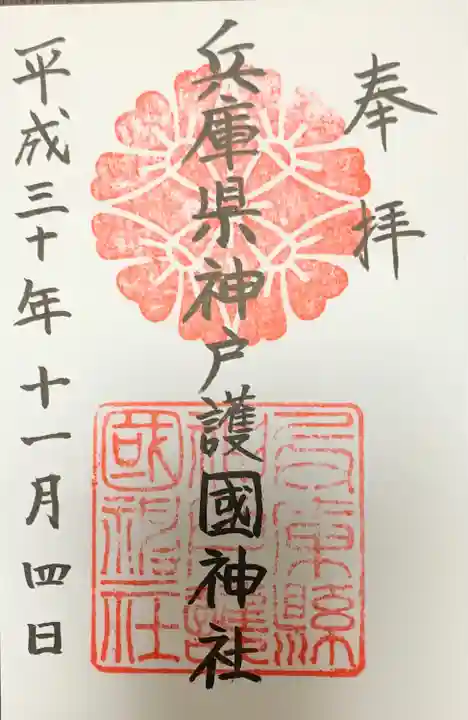 奉拝
兵庫県神戸護國神社
兵庫縣
神戸護
國神社
平成三十年十一月四日